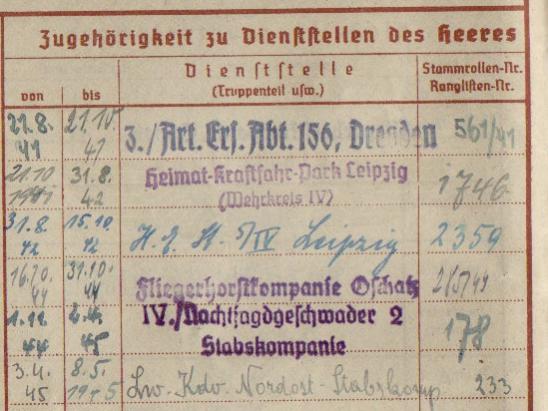 Zugehörigkeit zu Dienststellen des Heeres
von bis Dienststelle (Truppenteil usw.) Stammrollen-Nr. Ranglisten-Nr.
21.8. 41 21.10. 41 3./Art. Ers. Abt. 156, Dresden 561/41
21.10 1941 31.8. 42 Heimat-Kraftfahr-Park Leipzig (Wehrkreis IV) 1746
31.8. 42 15.10. 42 Leipzig 2359
16.10. 44 31.10. 44 Fliegerhorstkompanie Oschatz
1.11. 44 2.4. 45 IV./Nachtjagdgeschwader 2 Stabskompanie 178
3.4. 45 8.5. 1945 Lw. Kdo. Nordost - Stabskomp. 233